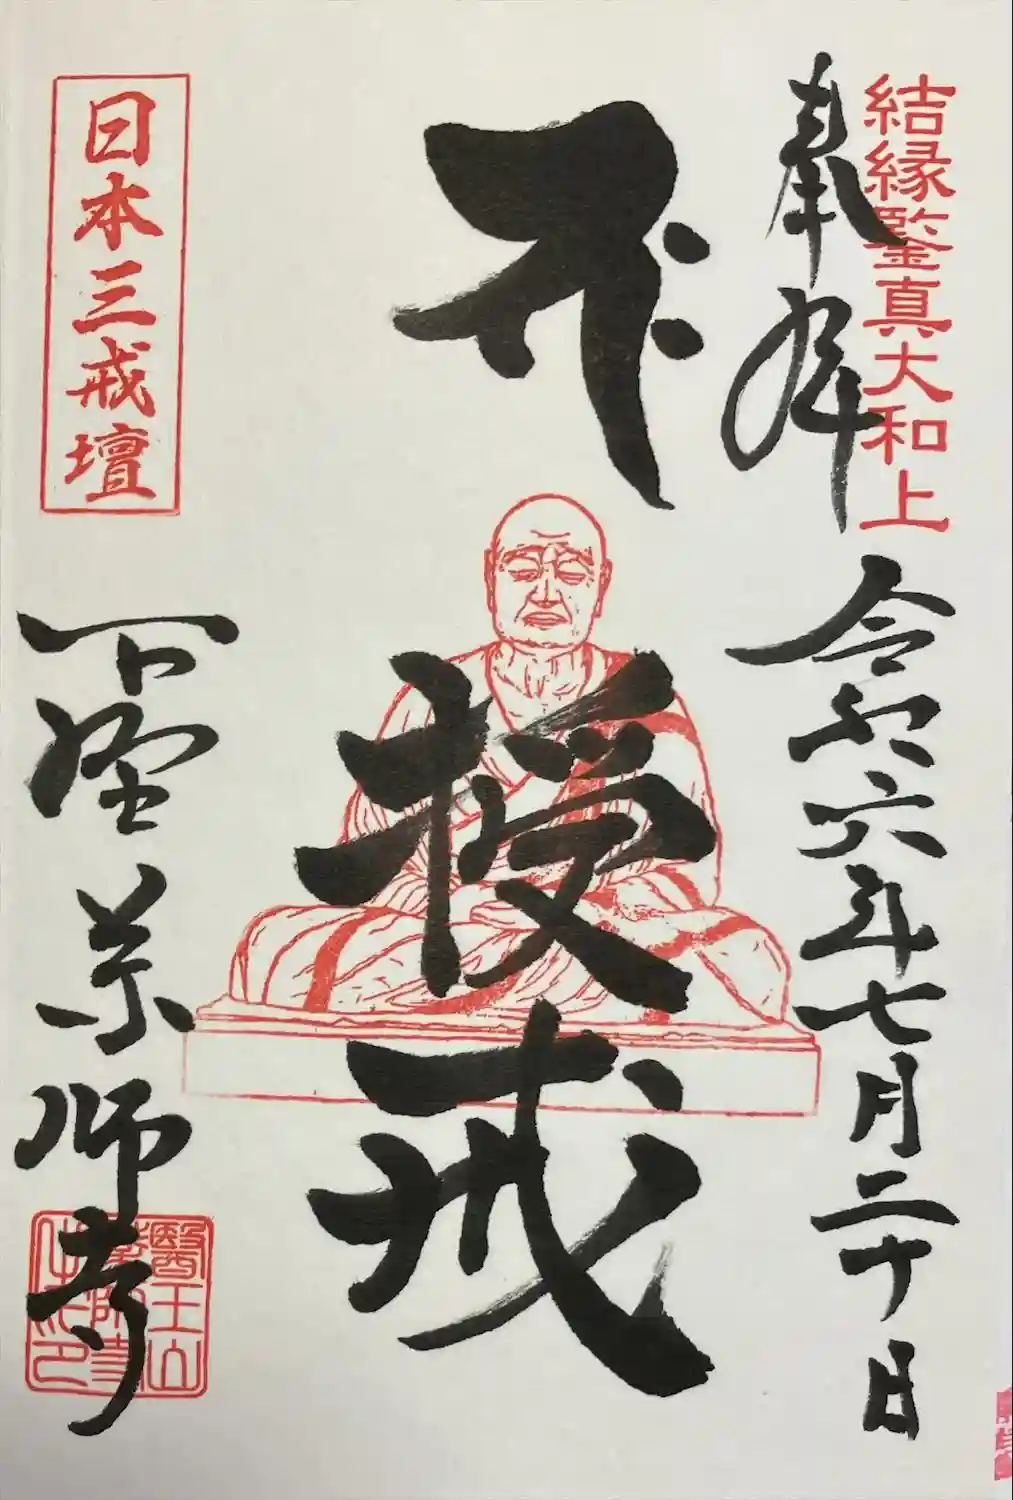 結縁鑒真大和上
奉拝
令和六年七月二十日
授戒
日本三戒壇
下野薬師寺
醫王山
薬師寺
之印